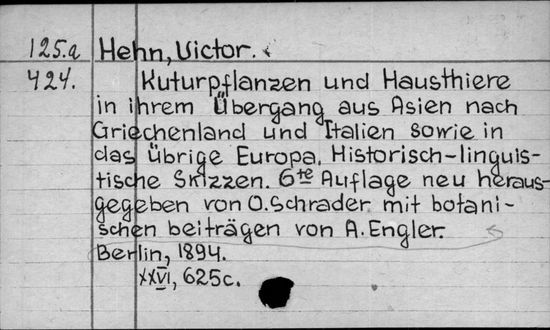 125.a Hehn, Victor.
424. Kuturpflanzen und Hausthiere
in ihrem Übergang aus Asien nach
Griechenland und Italien sowie in
das übrige Europa. Historisch-linguis-
tische Skizzen. 6te Auflage neu heraus-
gegeben von O. Schrader mit botani-
schen beiträgen von A. Engler.
Berlin, 1894.
XXVI, 625c.